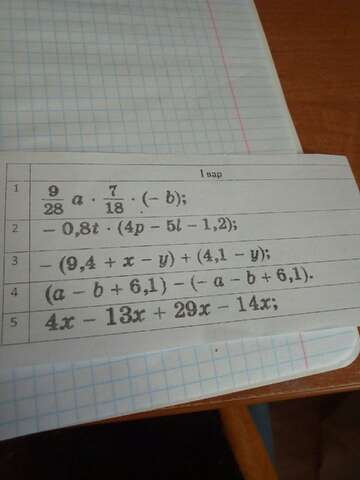 I вар
1 9/28 a · 7/18 · (– b);
2 – 0,8t · (4p – 5l – 1,2);
3 – (9,4 + x – y) + (4,1 – y);
4 (a – b + 6,1) – (– a – b + 6,1).
5 4x – 13x + 29x – 14x;